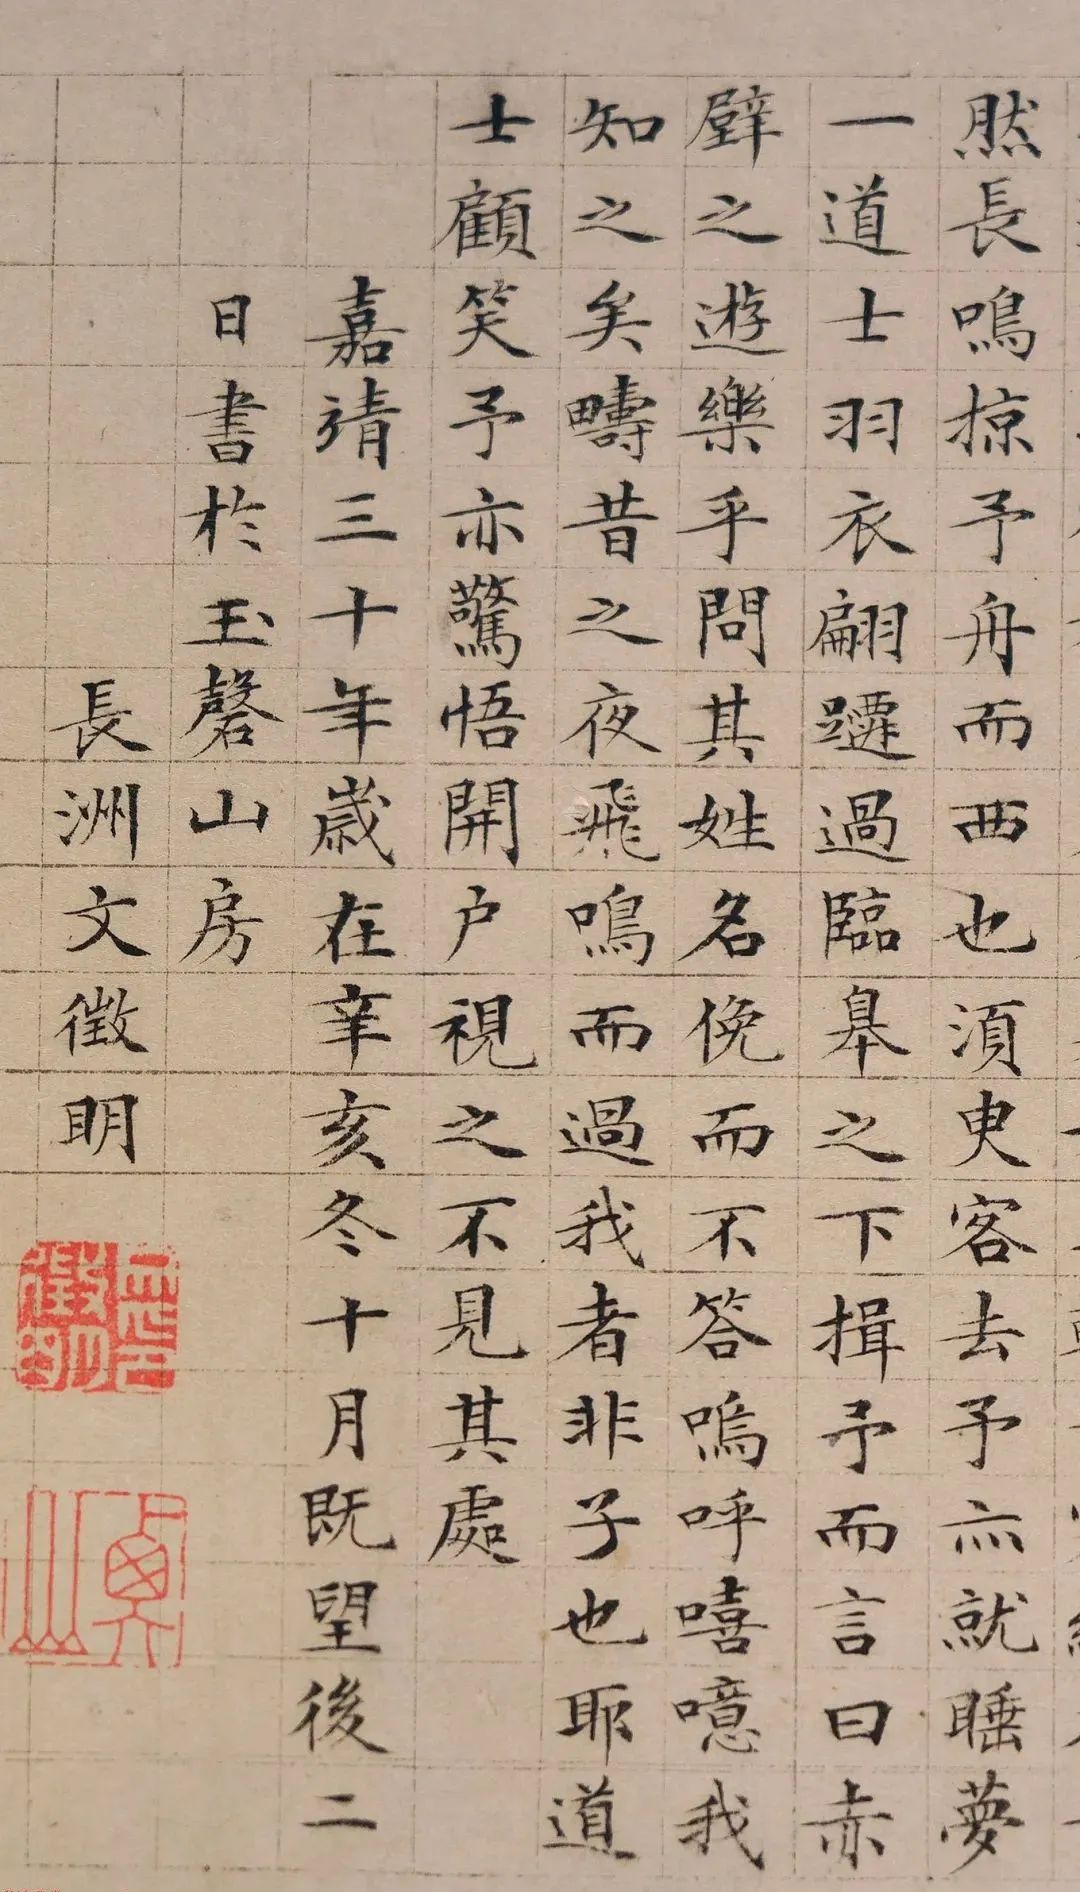 然長鳴掠予舟而西也湏臾客去予亦就睡夢
一道士羽衣翩躚過臨皋之下揖予而言曰赤
壁之遊樂乎問其姓名俛而不答嗚呼嘻噫我
知之矣疇昔之夜飛鳴而過我者非子也耶道
士顧笑予亦驚悟開户視之不見其處
嘉靖三十年歲在辛亥冬十月既望後二
日書於玉磬山房
長洲文徵明